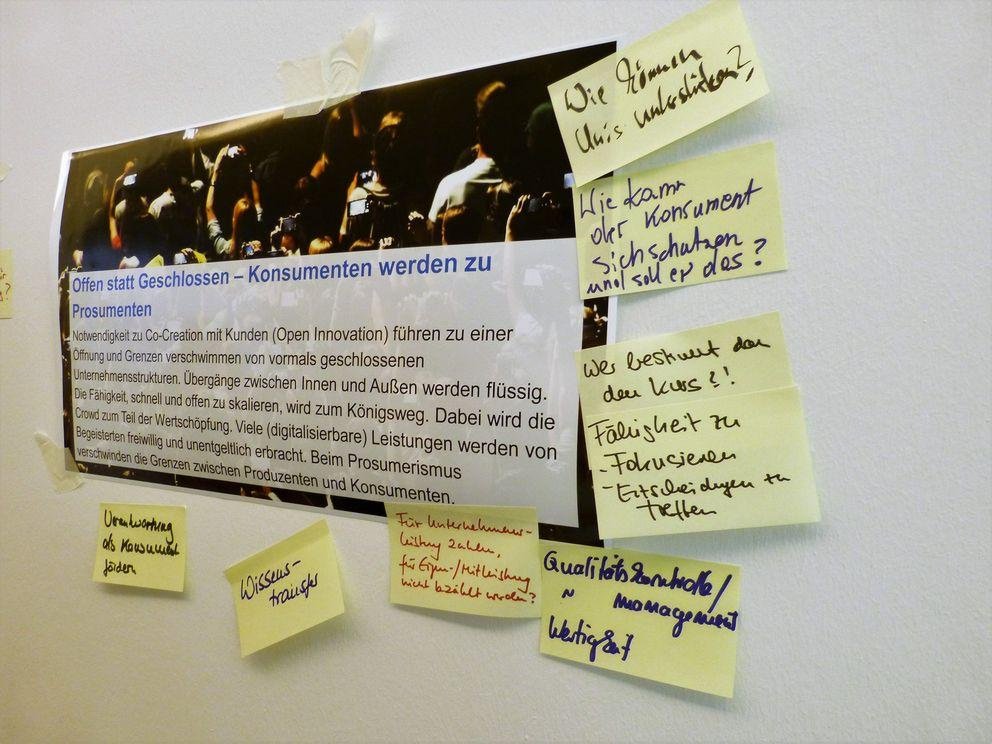 Offen statt Geschlossen – Konsumenten werden zu
Prosumenten
Notwendigkeit zu Co-Creation mit Kunden (Open Innovation) führen zu einer
Öffnung und Grenzen verschwimmen von vormals geschlossenen
Unternehmensstrukturen. Übergänge zwischen Innen und Außen werden flüssig.
Die Fähigkeit, schnell und offen zu skalieren, wird zum Königsweg. Dabei wird die
Crowd zum Teil der Wertschöpfung. Viele (digitalisierbare) Leistungen werden von
Begeisterten freiwillig und unentgeltlich erbracht. Beim Prosumerismus
verschwinden die Grenzen zwischen Produzenten und Konsumenten.
Wie können
Unis unterstützen?
Wie kann
der Konsument
sich schützen
und soll er das?
Wer bestimmt dann
den Kurs?!
Fähigkeit zu
- Fokussieren
- Entscheidungen zu
treffen
Verantwortung
als Konsument
fördern
Wissens-
transfer
Für Unternehmens-
leistung zahlen,
für Eigen-/Mitleistung
nicht bezahlt werden?
Qualitätskontrolle/
" management
Wertigkeit